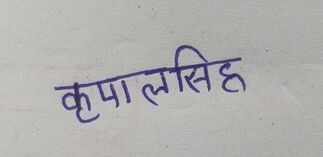 कृपालसिह